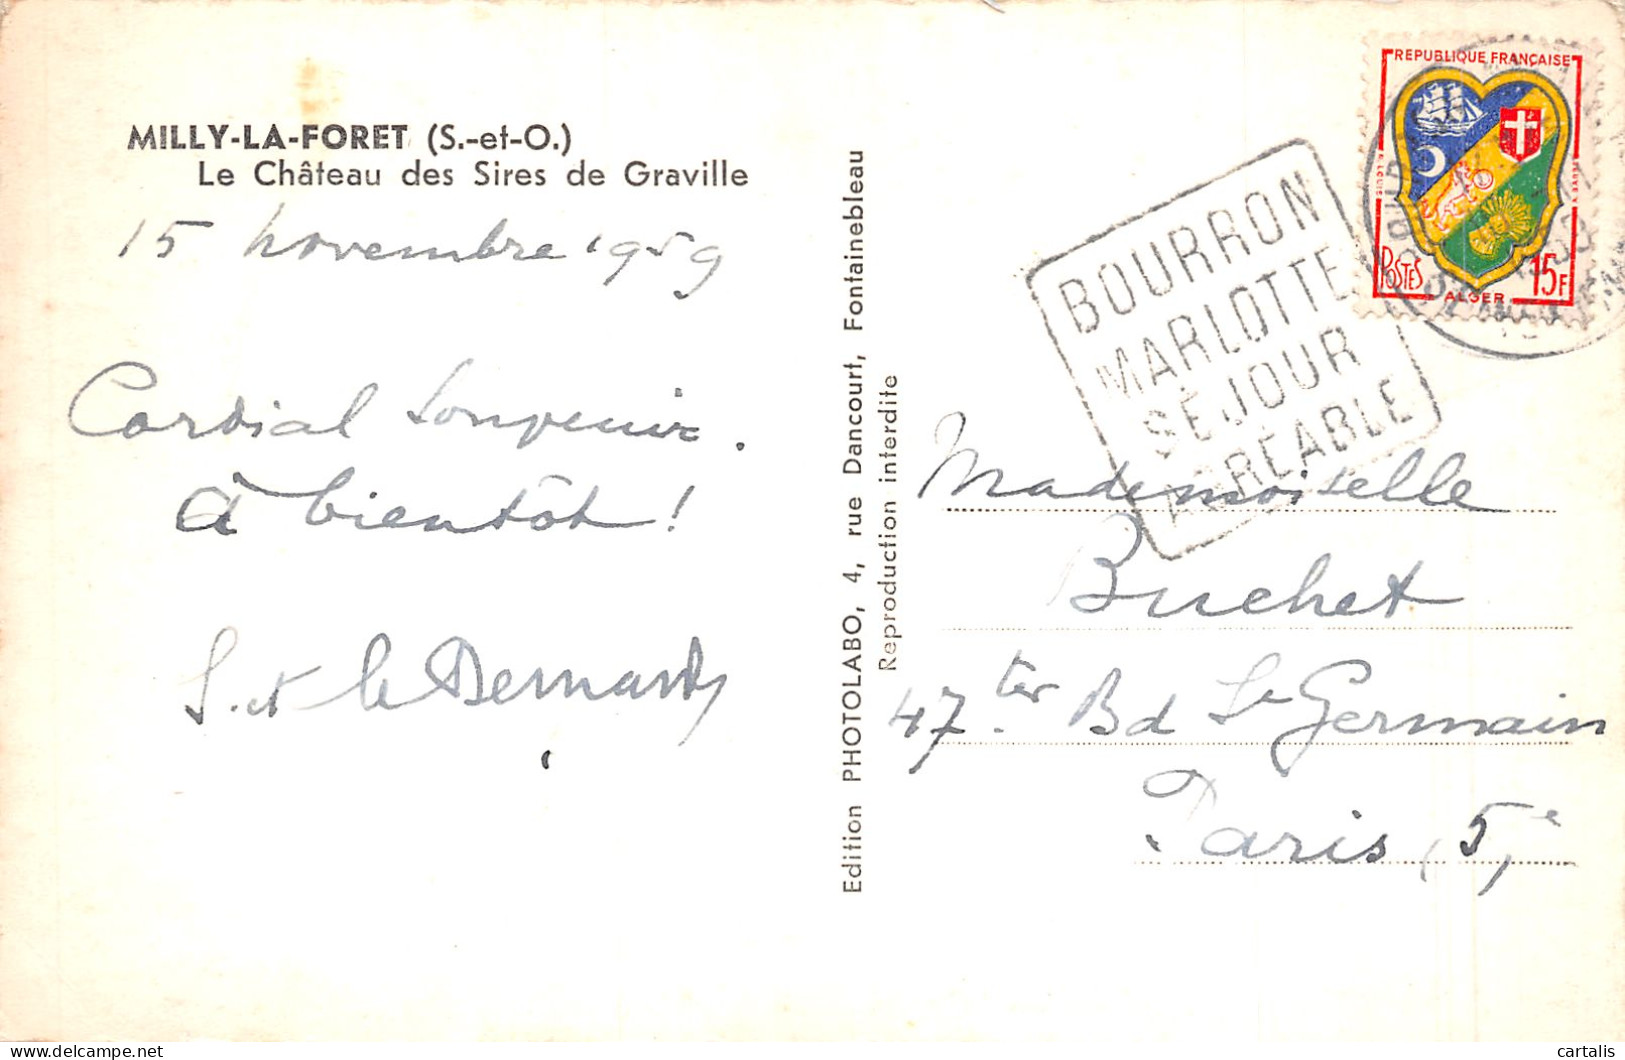 MILLY-LA-FORET (S.-et-O.)
Le Château des Sires de Graville
15 novembre 1959
Cordial souvenir.
à bientôt !
Edition PHOTOLABO, 4, rue Dancourt, Fontainebleau
Reproduction interdite
BOURRON
MARLOTTE
SÉJOUR
AGRÉABLE
REPUBLIQUE FRANÇAISE
POSTES
ALGER
15F
Mademoiselle
Buchet
47 ter Bd St Germain
Paris, 5e
cartalis